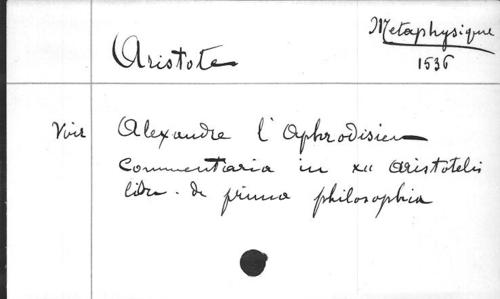 Metaphysique
1536
Aristote
Voir Alexandre l'Aphrodisien
Commentaria in XII Aristotelis
libr. de prima philosophia